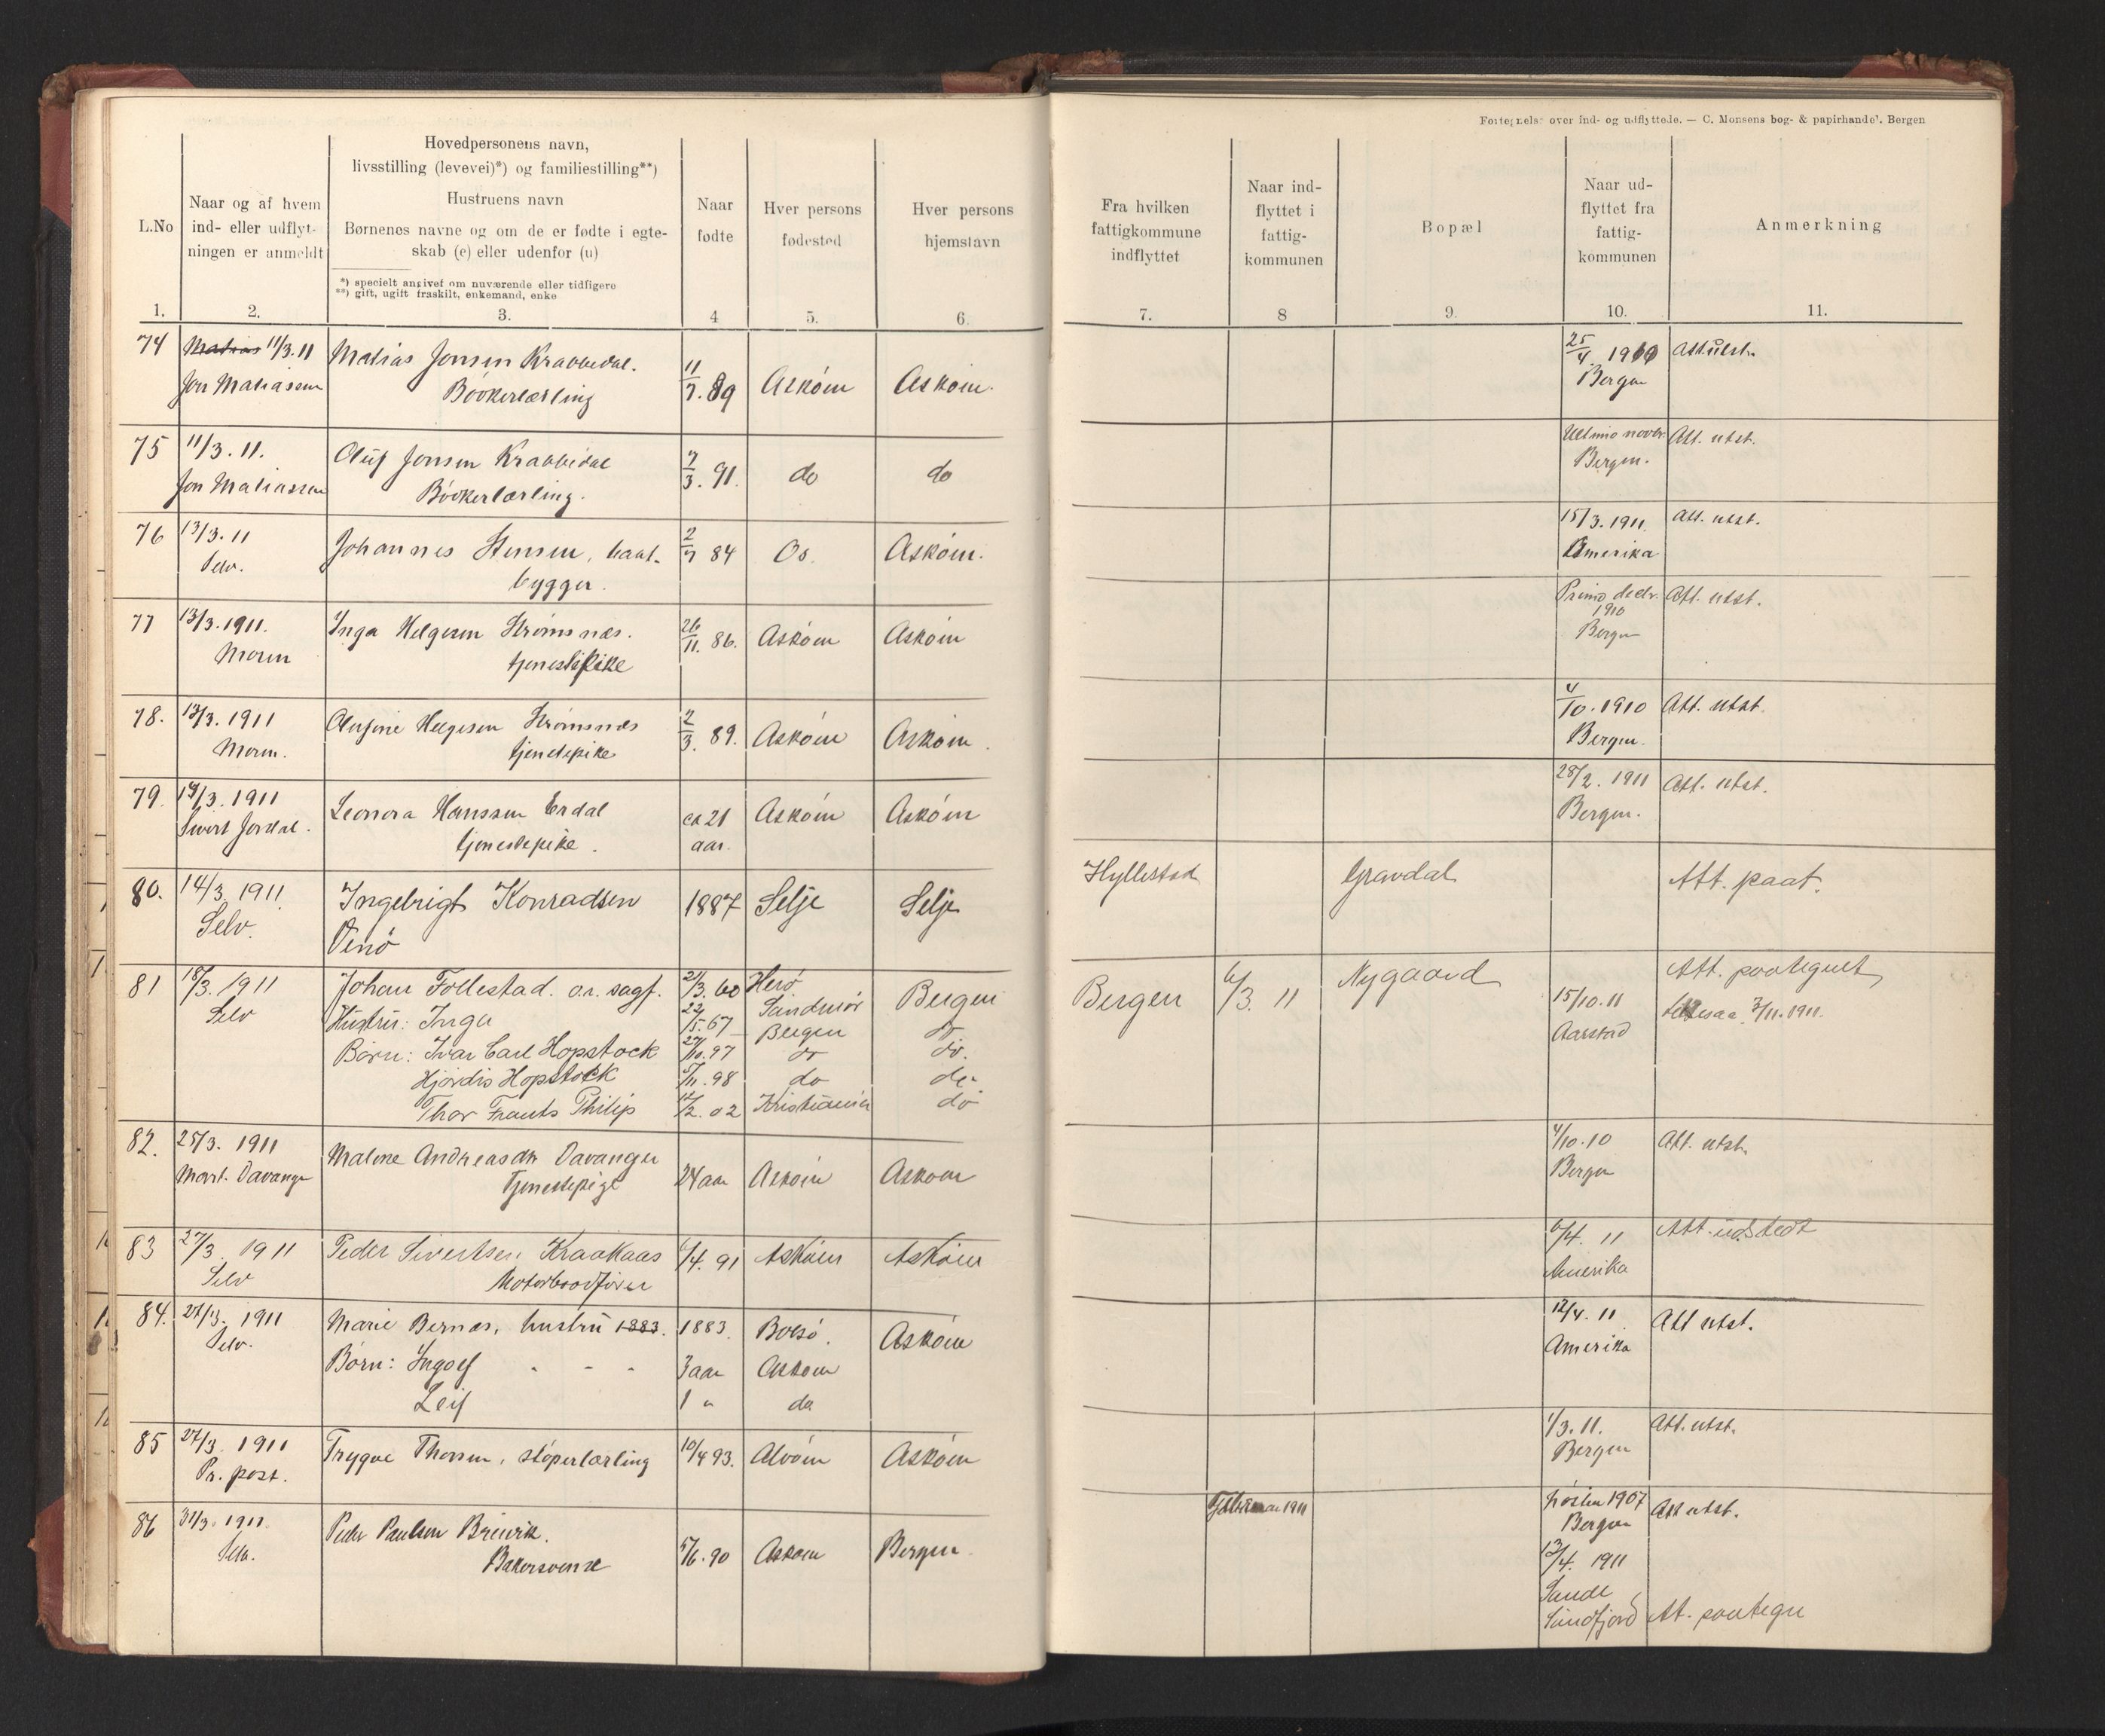 Fortegnelse over ind- og udflyttede. — C. Monsens bog- & papirhandel. Bergen
L.No
Naar og af hvem
ind- eller udflyt-
ningen er anmeldt
Hovedpersonens navn,
livsstilling (levevei)*) og familiestilling**)
Hustruens navn
Børnenes navne og om de er fødte i egte-
skab (e) eller udenfor (u)
*) specielt angivet om nuværende eller tidligere
**) gift, ugift fraskilt, enkemand, enke
Naar
fødte
Hver persons
fødested
Hver persons
hjemstavn
Fra hvilken
fattigkommune
indflyttet
Naar ind-
flyttet i
fattig-
kommunen
Bopæl
Naar ud-
flyttet fra
fattig-
kommunen
Anmerkning
1. 2. 3. 4 5. 6. 7. 8 9. 10. 11.
74 Matias 11/3.11 Matias Jonsen Krabbedal. 11/7.89 Askøen Askøen. 25/4. 1910 Att. utst.
Jon Matiassen Bødkerlærling Bergen
75 11/3.11. Oluf Jonsen Krabbedal 7/3. 91. do do Ultimo novbr. Att. utst.
Jon Matiassen Bødkerlærling. Bergen.
76 13/3.11 Johannes Stensen, baat- 2/7 84 Os. Askøen. 15/3.1911. Att. utst.
Selv. bygger. Amerika
77 13/3.1911. Inga Helgesen Strømsnæs. 26/11. 86. Askøen Askøen Primo decbr. Att. utst.
1910
Moren tjenestepike Bergen
78. 13/3.1911 Olufine Helgesen Strømsnæs 2/3. 89. Askøen Askøen. 4/10.1910 Att. utst.
Moren. tjenestepike Bergen.
79. 14/3.1911 Leonora Hanssen Erdal ca 21 Askøen Askøen 28/2. 1911 Att. utst.
Sivert Jordal. tjenestepike. aar. Bergen.
80. 14/3 1911 Ingebrigt Konradsen 1887 Selje Selje Hyllestad Gravdal Att. paat.
Selv. Venø
81 18/3. 1911 Johan Follestad. o.r. sagf. 21/3.60 Herø Bergen Bergen 6/3. 11 Nygaard 15/10.11 Att. paategnet
Selv Hustru: Inga 22/5.67 Søndmør do Aarstad 7/11.1911.
Børn: Ivar Carl Hopstock 27/10.97 Bergen do.
Hjørdis Hopstock 5/11.98 do do
Thor Frants Philip 12/2.02 Kristiania do
82. 25/3. 1911 Malene Andreasdtr Davanger 24 aar Askøen Askøen 4/10.10 Att. utst.
Mart. Davanger Tjenestepige Bergen
83 27/3. 1911 Peder Sivertsen Kraakaas 6/4. 91 Askøen Askøen 6/4. 11 Att. udstedt
Selv Motorbaadfører Amerika
84. 27/3. 1911 Marie Bernes, hustru 1883. 1883. Bolsø. Askøen 12/4.11 Att utst.
Selv. Børn: Ingolf - - - 3 aar Askøen Amerika
Leif 1 " do
85 27/3. 1911 Trygve Thorsen, støperlærling 10/4 93. Alvøen Askøen 1/3.11. Att. utst.
Pr. post. Bergen
86 31/3. 1911 Peder Paulsen Breivik. 5/6.90 Askøen Bergen. Februar 1911 høsten 1907 Att utst.
Selv. Bakersvend Bergen
13/4. 1911
Sande
Søndfjord Att. paategn